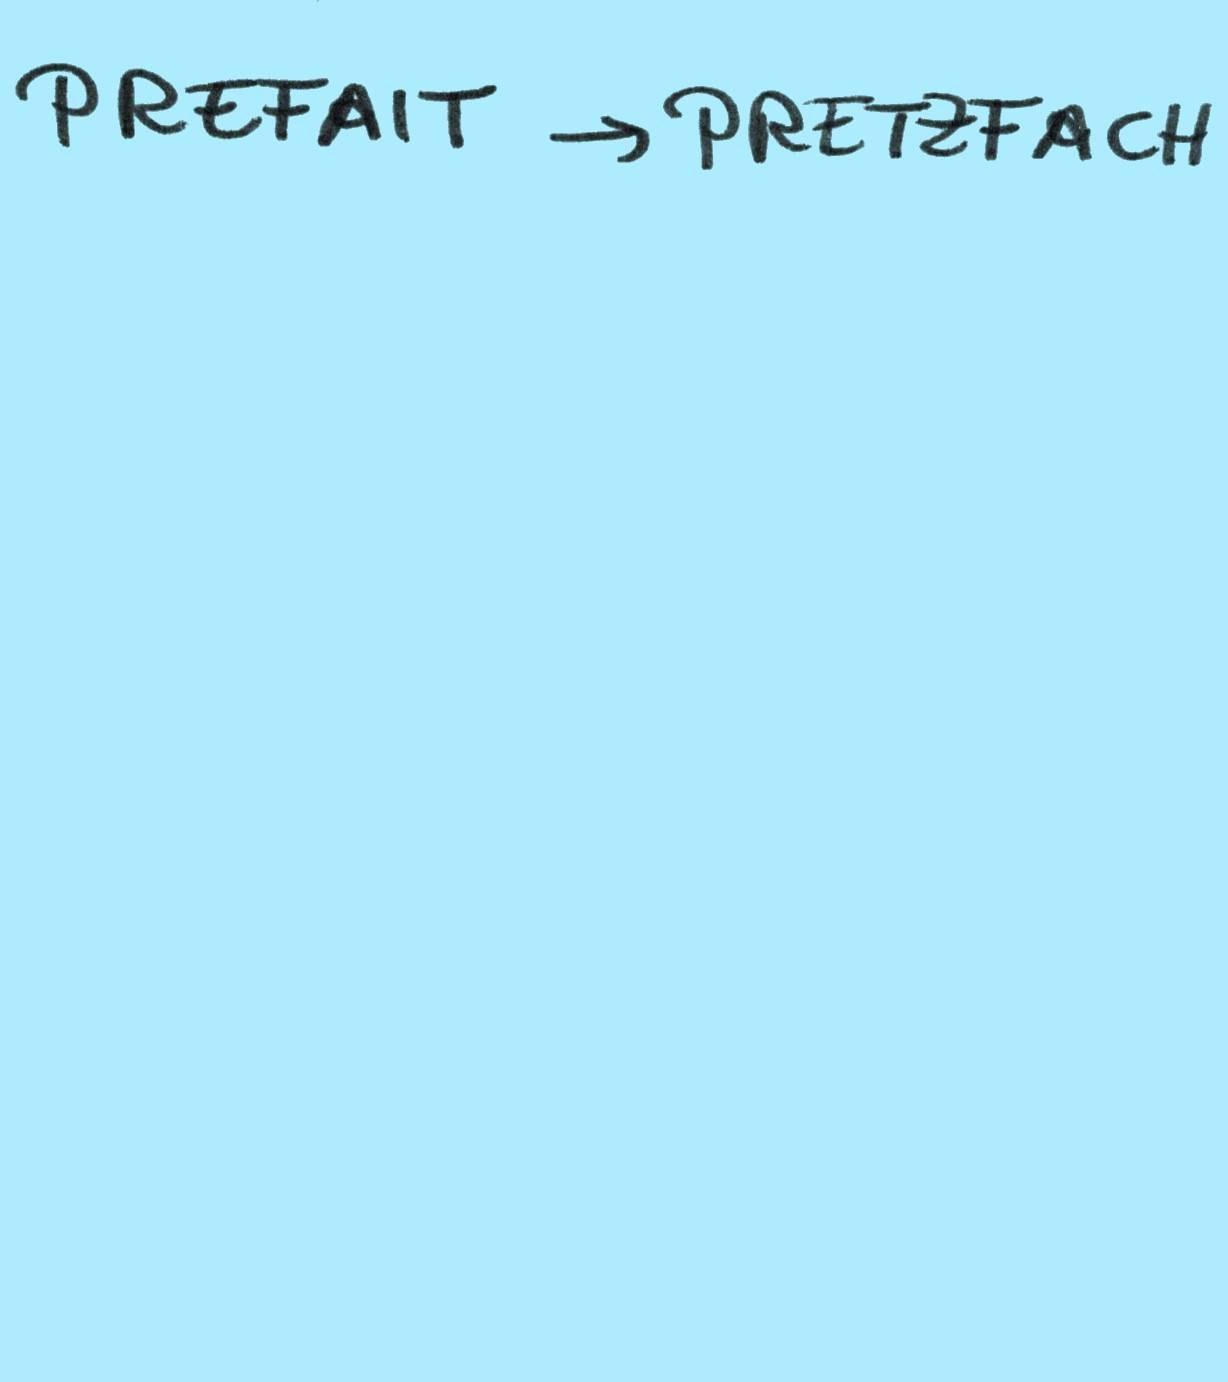 PREFAIT → PRETZFACH